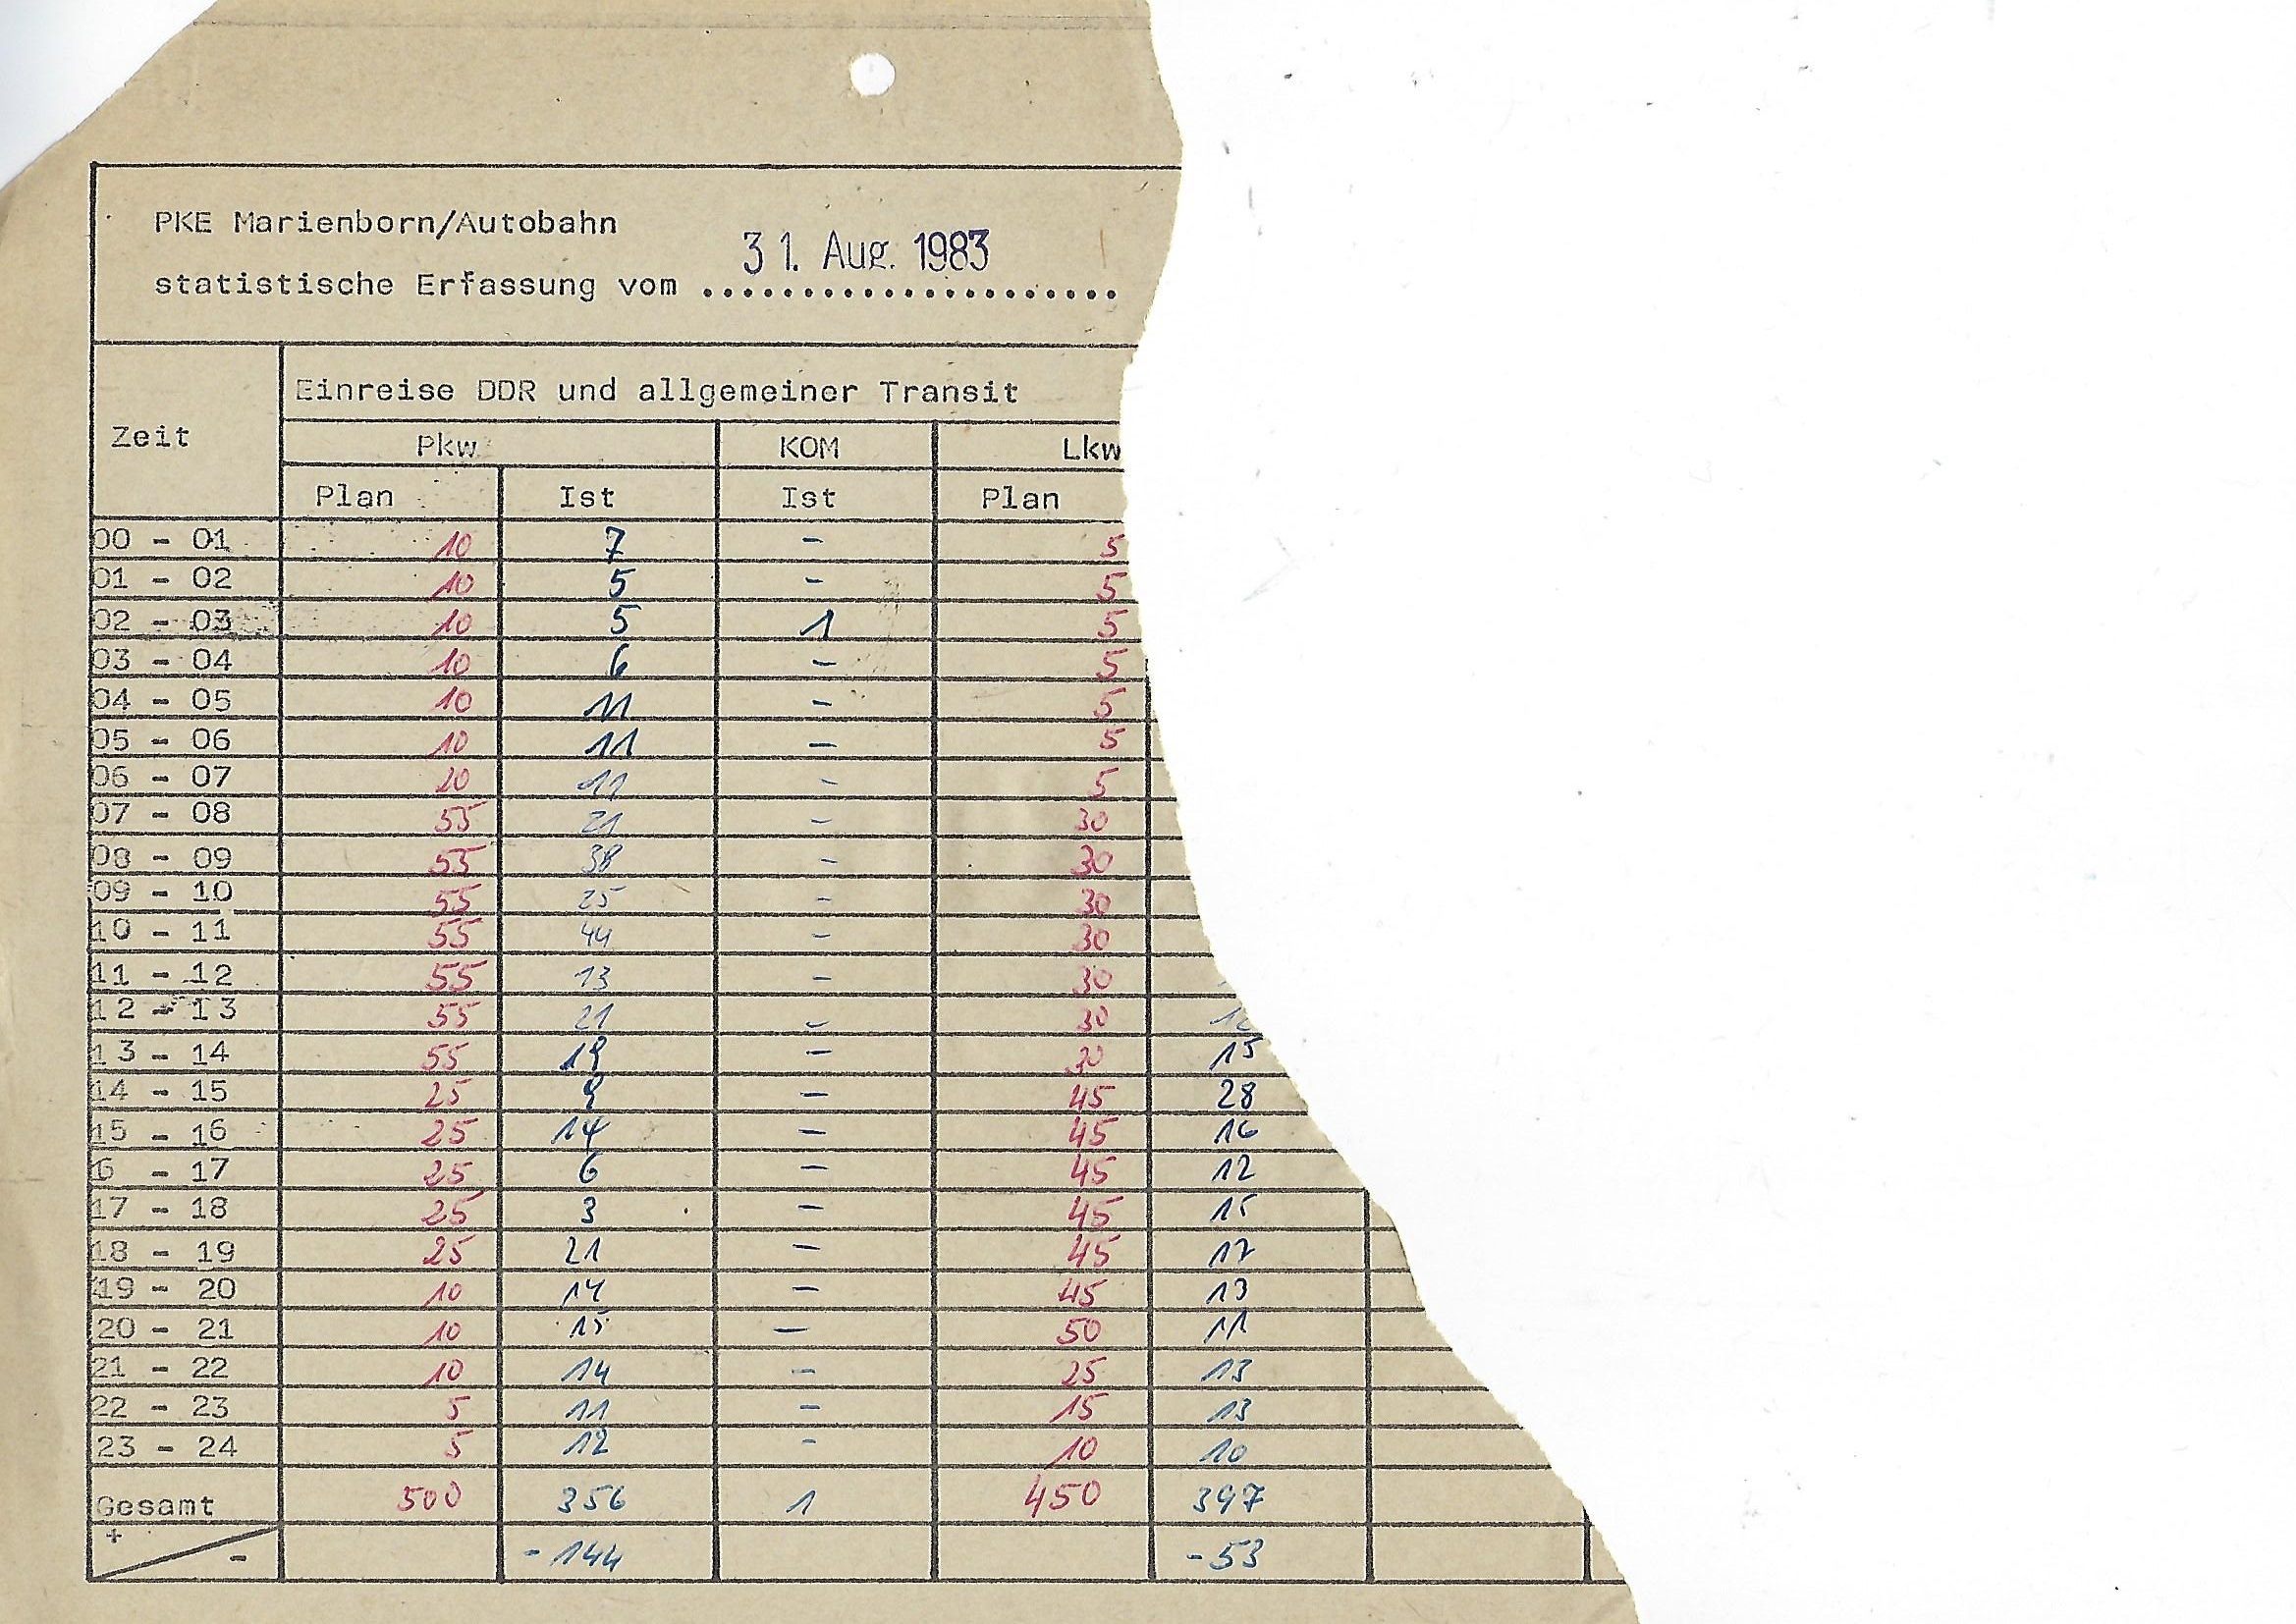 PKE Marienborn/Autobahn
31. Aug. 1983
statistische Erfassung vom .....................
Einreise DDR und allgemeiner Transit
Zeit
Pkw KOM Lkw
Plan Ist Ist Plan
00 - 01 10 7 - 5
01 - 02 10 5 - 5
02 - 03 10 5 1 5
03 - 04 10 6 - 5
04 - 05 10 11 - 5
05 - 06 10 11 - 5
06 - 07 20 11 - 5
07 - 08 55 21 - 30
08 - 09 55 38 - 30
09 - 10 55 25 - 30
10 - 11 55 44 - 30
11 - 12 55 13 - 30
12 - 13 55 21 - 30
13 - 14 55 19 - 30 15
14 - 15 25 9 - 45 28
15 - 16 25 14 - 45 16
6 - 17 25 6 - 45 12
17 - 18 25 3 - 45 15
18 - 19 25 21 - 45 17
19 - 20 10 14 - 45 13
20 - 21 10 15 - 50 11
21 - 22 10 14 - 25 13
22 - 23 5 11 - 15 13
23 - 24 5 12 - 10 10
Gesamt 500 356 1 450 397
+ - -144 -53